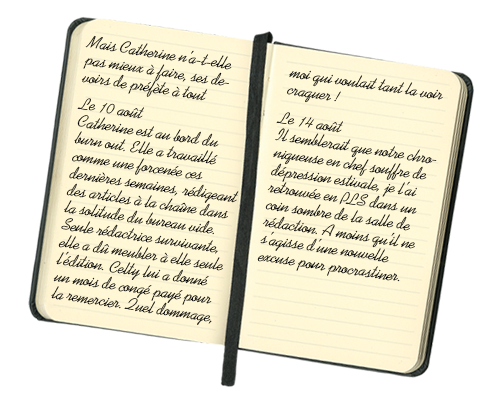 Mais Catherine n'a-t-elle
pas mieux à faire, ses de-
voirs de préfète à tout
Le 10 août
Catherine est au bord du
burn out. Elle a travaillé
comme une forcenée ces
dernières semaines, rédigeant
des articles à la chaîne dans
la solitude du bureau vide.
Seule rédactrice survivante,
elle a dû meubler à elle seule
l'édition. Celly lui a donné
un mois de congé payé pour
la remercier. Quel dommage,
moi qui voulait tant la voir
craquer !
Le 14 août
Il semblerait que notre chro-
niqueuse en chef souffre de
dépression estivale, je l'ai
retrouvée en PLS dans un
coin sombre de la salle de
rédaction. A moins qu'il ne
s'agisse d'une nouvelle
excuse pour procrastiner.